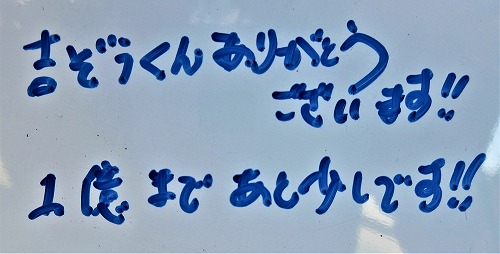 吉ぞうくんありがとう
ございます!!
1億まであと少しです!!